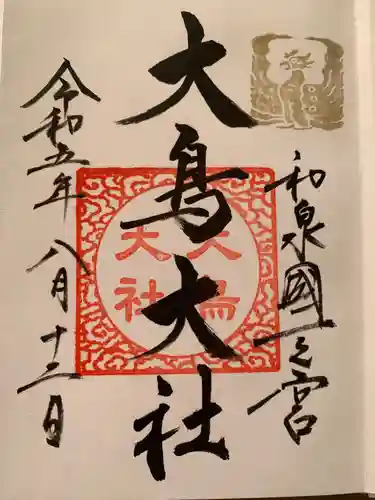 和泉國一之宮
大鳥大社
大鳥大社
令和五年八月十二日